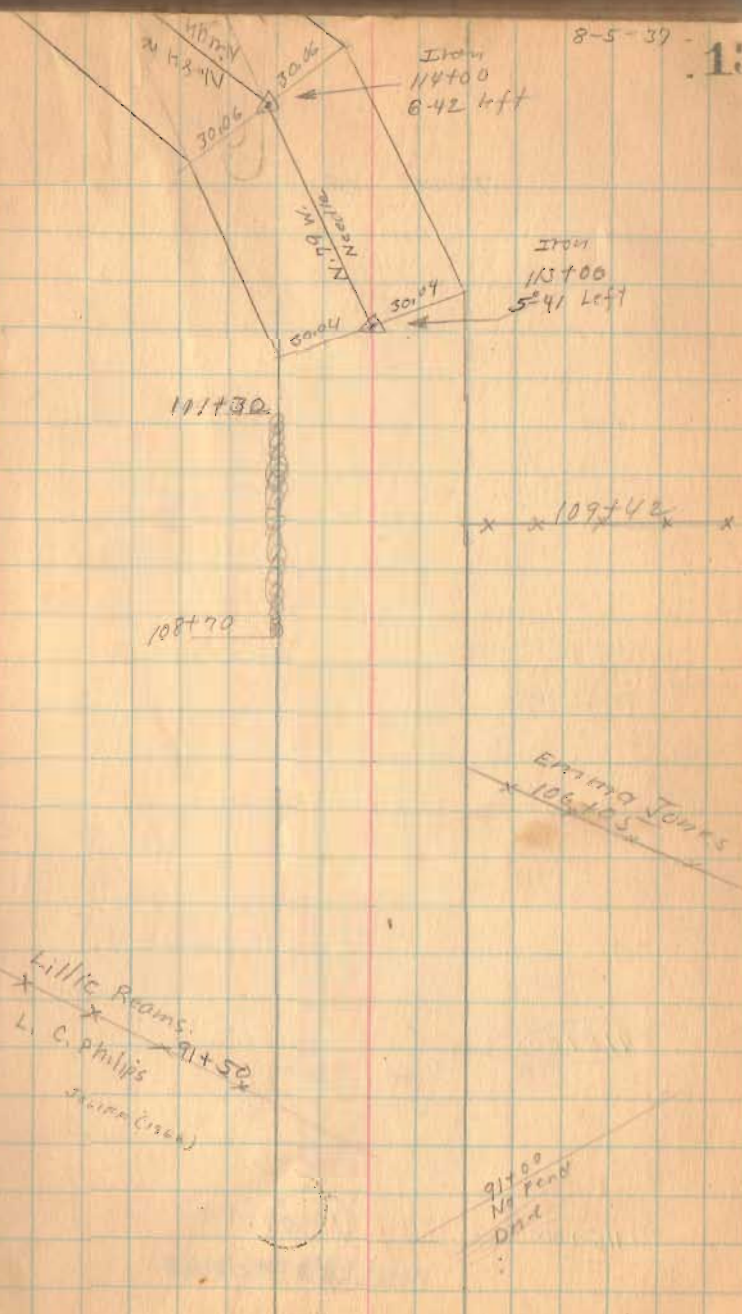 8-5-37
13
N.84 W
30.06
30.06
Iron
114+00
6-42 Left
N.79 W.
Needle
Iron
113+00
5°-41 Left
30.04
30.04
111+30
109+42
108+70
Emma Jones
106+05
Lillie Reams.
L. C. Philips
91+50
91+00
No Pend